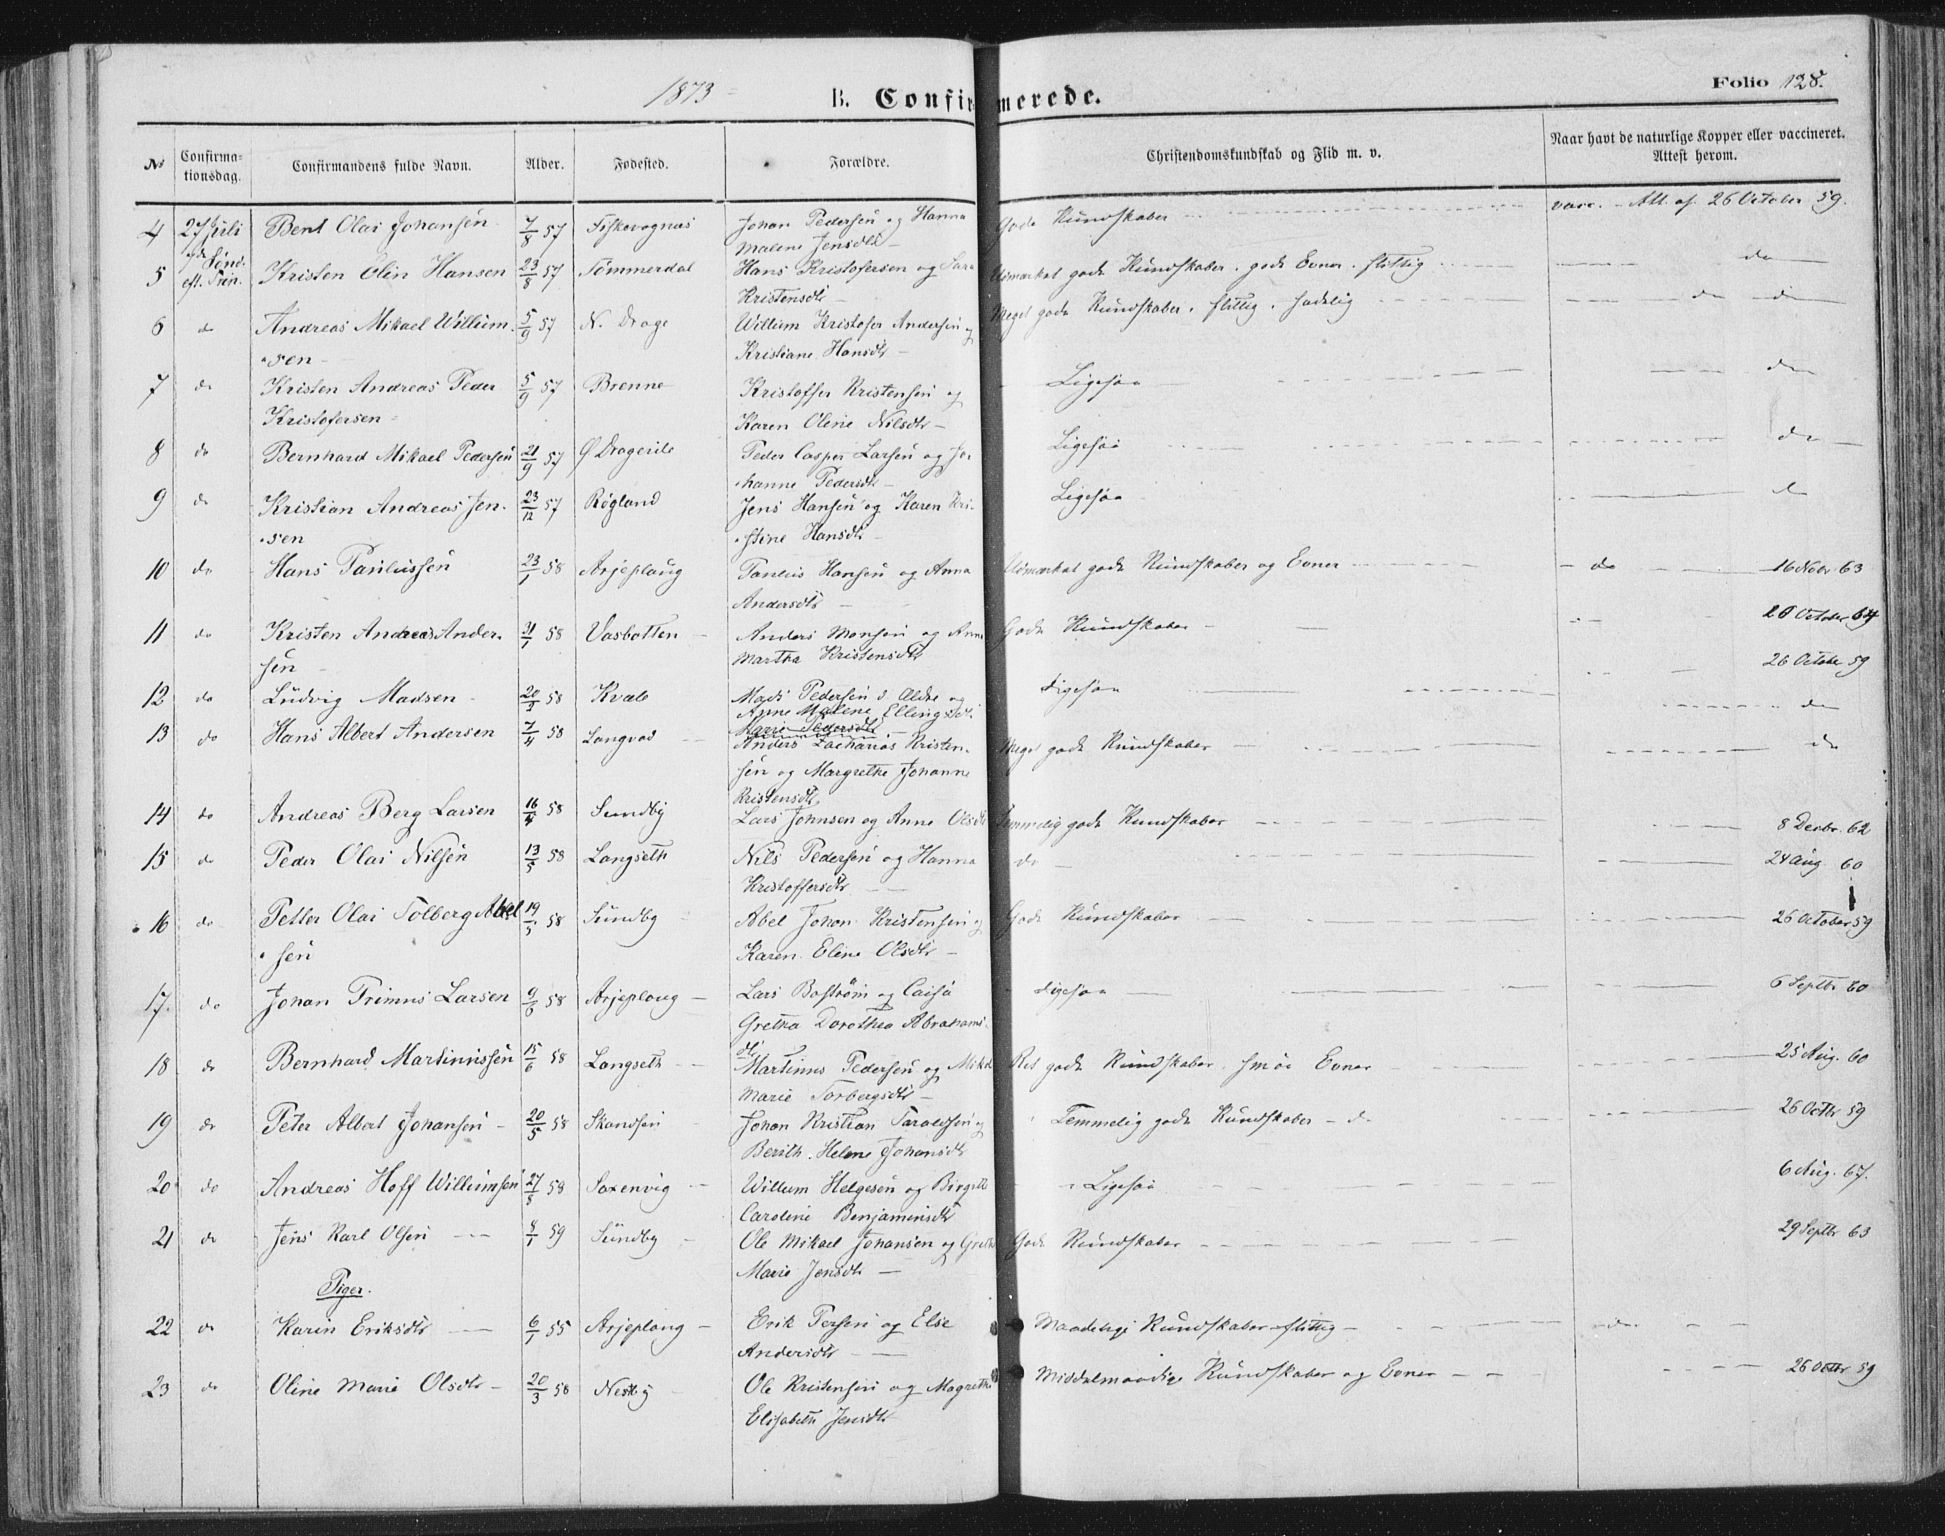 1873
B. Confirmerede.
Folio 128.
No
Confirmationsdag.
Confirmandens fulde Navn.
Alder.
Fødested.
Forældre.
Christendomskundskab og Flid m. v.
Naar havt de naturlige Kopper eller vaccineret. Attest herom.
4 27 Juli Bent Olai Johansen 7/8 57 Johan Pedersen og Hanna Gode Kundskaber vacc. - Att. af 26 October 59.
Malene Jensdtr
5 Sønd. eft. Trin. Kristen Olin Hansen 23/8 57 Tømmerdal Hans Kristofersen og Sara Udmærket gode Kundskaber. gode Evner. flittig do
Kristensdtr
6 do Andreas Mikael Willum- 5/9 57 N. Drage Willum Kristofer Andersen og Meget gode Kundskaber. flittig. sædelig do do
sen Kristiane Hansdtr
7 do Kristen Andreas Peder 5/9 57 Brenne Kristoffer Kristensen og Ligesaa do
Kristofersen Karen Oline Nilsdtr
8 do Bernhard Mikael Pedersen 21/9 57 Ø Drageide Peder Casper Larsen og Jo- Ligesaa do
hanne Pedersdtr
9 do Kristian Andreas Jen- 23/12 57 Røgland Jens Hansen og Karen Kri- Ligesaa do
sen stine Hansdtr
10 do Hans Paulussen 23/1 58 Arjeplaug Paulus Hansen og Anna Udmærket gode Kundskaber og Evner do 16 Novbr 63
Andersdtr
11 do Kristen Andreas Ander- 31/1 58 Vasbotten Anders Monsen og Anne Gode Kundskaber 20 October 64
sen Martha Kristensdtr
26 Octobe 59
12 do Ludvig Madsen 20/2 58 Kvale Mads Pedersen d. Ældre og Ligesaa do
Anne Malene Ellingsdtr
Marie Pedersdtr
13 do Hans Albert Andersen 7/4 58 Langvad Anders Zacharias Kristen- Meget gode Kundskaber do
sen og Margrethe Johanne
Kristensdtr
14 do Andreas Berg Larsen 16/4 58 Sundby Lars Johnsen og Anne Olsdtr Temmelig gode Kundskaber 8 Decbr. 62
15 do Peder Olai Nilsen 13/5 58 Langseth Nils Pedersen og Hanna do 24 Aug 60
Kristoffersdtr
16 do Petter Olai Solberg Abel 19/5 58 Sundby Abel Johan Kristensen og Gode Kundskaber 26 October 59
sen Karen Eline Olsdtr
17. do Johan Primus Larsen 9/6 58 Arjeplaug Lars Boström og Caisa Ligesaa 6 Septbr 60
Gretha Dorothea Abrahams-
dtr
18 do Bernhard Martinussen 15/6 58 Langseth Martinus Pedersen og Ret gode Kundskaber. smaa Evner 25 Aug. 60
Marie Torbergsdtr
19 do Peter Albert Johansen 20/5 58 Skandsen Johan Kristian Taraldsen og Temmelig gode Kundskaber - do 26 Octbr 59
Berith Helene Johansdtr
20 do Andreas Hoff Willumsen 27/8 58 Saxenvig Willum Helgesen og Birgitte Ligesaa 6 Aug. 67.
Caroline Benjaminsdtr
21 do Jens Karl Olsen 8/1 59 Sundby Ole Mikael Johansen og Grethe Gode Kundskaber 29 Septbr 63
Marie Jensdtr
Piger.
22 do Karin Eriksdtr 6/1 55 Arjeplaug Erik Persen og Else Maadelige Kundskaber flittig do
Andersdtr
23 do Oline Marie Olsdtr 20/3 58 Nestby Ole Kristensen og Magrethe Middelmaadige Kundskaber og Evner 26 Octbr 59
Elisabeth Jensdtr